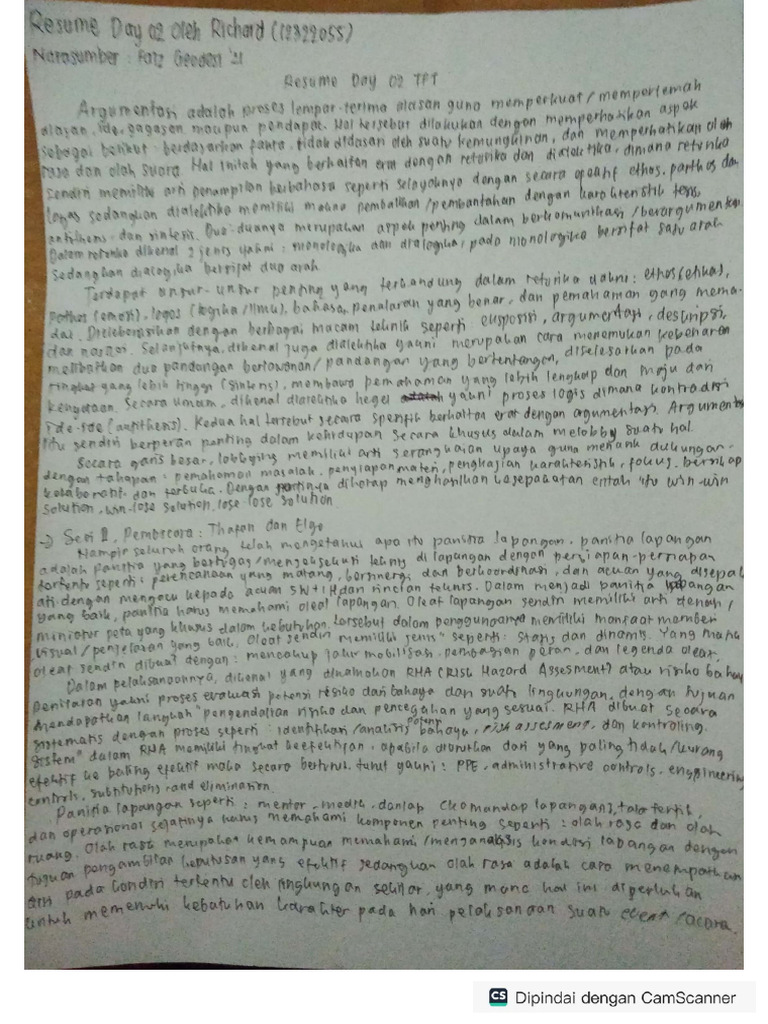 Resume Day 02 oleh Richard (12322055)
Narasumber : Faiz Geodesi '21
Resume Day 02 TFT
Argumentasi adalah proses lempar-terima alasan guna memperkuat / memperlemah
alasan, ide, gagasan maupun pendapat. Hal tersebut dilakukan dengan memperhatikan aspek
sebagai berikut : berdasarkan fakta, tidak didasari oleh suatu kemungkinan, dan memperhatikan olah
rasa dan olah suara. Hal inilah yang berkaitan erat dengan retorika dan dialektika, dimana retorika
sendiri memiliki arti penampilan berbahasa seperti selayaknya dengan secara efektif ethos, pathos dan
logos sedangkan dialektika memiliki makna pembalikan / pembantahan dengan karakteristik tesis,
antithesis dan sintesis. Dua-duanya merupakan aspek penting dalam berkomunikasi / berargumentasi.
Dalam retorika dikenal 2 jenis yakni : monologika dan dialogika, pada monologika bersifat satu arah
sedangkan dialogika bersifat dua arah.
Terdapat unsur-unsur penting yang terkandung dalam retorika yakni : ethos (etika),
pathos (emosi), logos (logika / ilmu), bahasa, penalaran yang benar, dan pemahaman yang mema-
dai. Dielaborasikan dengan berbagai macam teknik seperti : eksposisi, argumentasi, deskripsi,
dan narasi. Selanjutnya, dikenal juga dialektika yakni merupakan cara menemukan kebenaran
melibatkan dua pandangan berlawanan / pandangan yang bertentangan, diselesaikan pada
tingkat yang lebih tinggi (sintesis), membawa pemahaman yang lebih lengkap dan maju dari
kenyataan. Secara umum, dikenal dialektika hegel yakni proses logis dimana kontradiksi
ide-ide (antithesis). Kedua hal tersebut secara spesifik berkaitan erat dengan argumentasi. Argumentasi
itu sendiri berperan penting dalam kehidupan secara khusus dalam melobby suatu hal.
Secara garis besar, lobbying memiliki arti serangkaian upaya guna menarik dukungan
dengan tahapan : pemahaman masalah, penyiapan materi, pengkajian karakteristik, fokus, bersikap
kolaboratif dan terbuka. Dengan diharap menghasilkan kesepakatan entah itu win-win
solution, win-lose solution, lose-lose solution.
→ Sesi II, Pembicara : Thafan dan Elgo
Hampir seluruh orang telah mengetahui apa itu panitia lapangan. panitia lapangan
adalah panitia yang bertugas / mengeksekusi teknis di lapangan dengan persiapan-persiapan
tertentu seperti : perencanaan yang matang, bersinergi dan berkoordinasi, dan acuan yang disepak
ati dengan mengacu kepada acuan 5W+1H dan rincian teknis. Dalam menjadi panitia lapangan
yang baik, panitia harus memahami oleat lapangan. Oleat lapangan sendiri memiliki arti denah /
miniatur peta yang khusus dalam kebutuhan tersebut dalam penggunanya memiliki manfaat memberi
visual / penjelasan yang baik. Oleat sendiri memiliki jenis" seperti : statis dan dinamis. Yang mana
oleat sendiri dibuat dengan : mencakup jalur mobilisasi, pembagian peran, dan legenda oleat.
Dalam pelaksanaannya, dikenal yang dinamakan RHA (Risk Hazard Assesment) atau risiko bahaya
penilaian yakni proses evaluasi potensi risiko dan bahaya dari suatu lingkungan, dengan tujuan
mendapatkan langkah" pengendalian risiko dan pencegahan yang sesuai. RHA dibuat secara
sistematis dengan proses seperti : identifikasi / analisis potensi bahaya, risk assesment, dan kontroling.
sistem" dalam RHA memiliki tingkat keefektifan, apabila diurutkan dari yang paling tidak / kurang
efektif ke paling efektif maka secara berturut-turut yakni : PPE, administrative controls, engineering
controls, substitutions and elimination.
Panitia lapangan seperti : mentor, medik, danlap (komandan lapangan), tata tertib,
dan operasional sejatinya harus memahami komponen penting seperti : olah rasa dan olah
ruang. Olah rasa merupakan kemampuan memahami / menganalisis kondisi lapangan dengan
tujuan pengambilan keputusan yang efektif sedangkan olah rasa adalah cara menempatkan
diri pada kondisi tertentu oleh lingkungan sekitar, yang mana hal ini diperlukan
untuk memenuhi kebutuhan karakter pada hari pelaksanaan suatu event / acara.
CS Dipindai dengan CamScanner